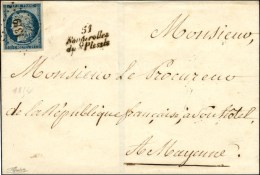 Monsieur,
51
Fougerolles
du Plessis
Monsieur Le Procureur
de la République française, à son hôtel,
A Mayenne.